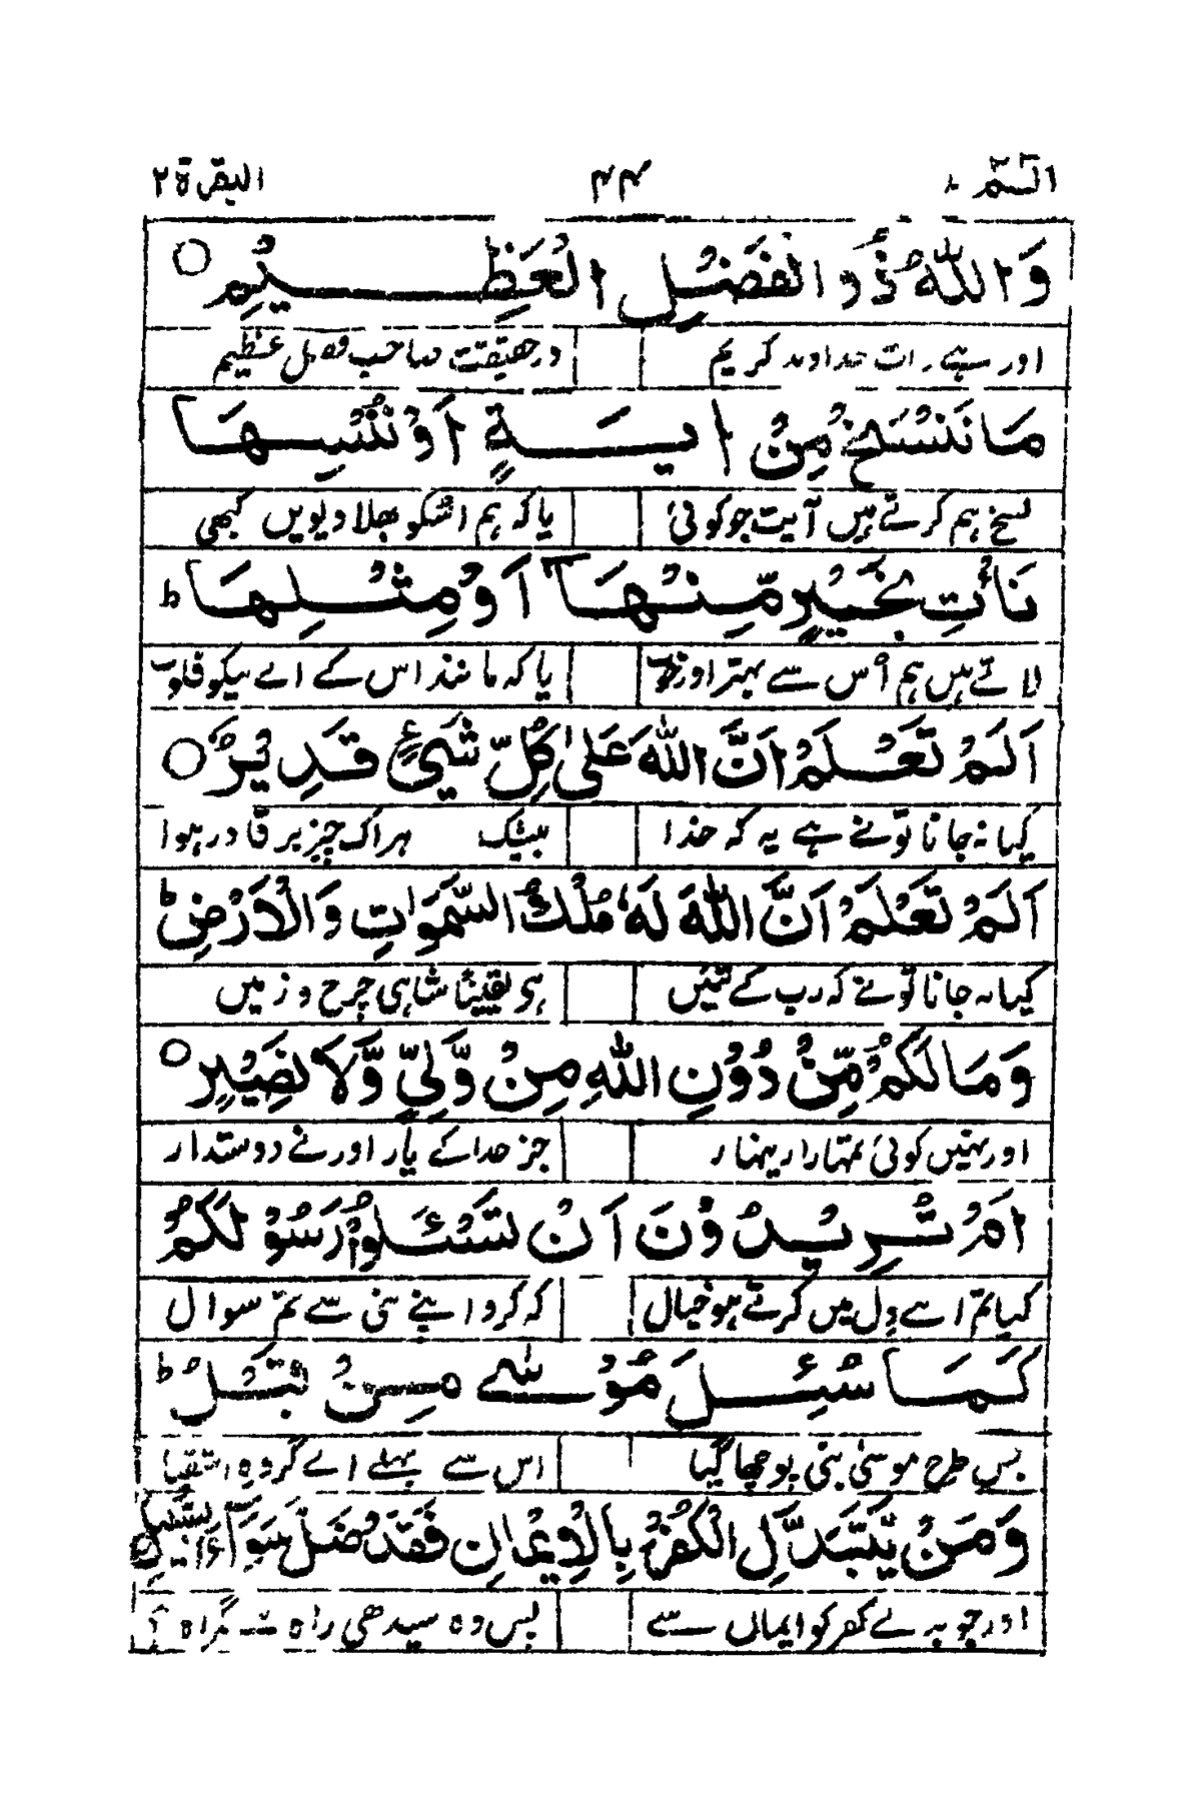 الٓـمّٓ ۱ ۴۴ البقرة ۲
وَاللّٰهُ ذُو الْفَضْلِ الْعَظِيْمِ ○
اور ہے ذات خداوند کریم درحقیقت صاحب فضل عظیم
مَا نَنْسَخْ مِنْ اٰيَةٍ اَوْ نُنْسِهَا
نسخ ہم کرتے ہیں آیت جو کوئی یا کہ ہم اسکو بھلا دیویں کبھی
نَاْتِ بِخَيْرٍ مِّنْهَاۤ اَوْ مِثْلِهَا ؕ
لاتے ہیں ہم اُس سے بہتر اور خوب یا کہ مانند اس کے اے نیکو قلوب
اَلَمْ تَعْلَمْ اَنَّ اللّٰهَ عَلٰى كُلِّ شَيْءٍ قَدِيْرٌ ○
کیا نہ جانا تونے ہے یہ کہ خدا بیشک ہر اک چیز پر قادر ہوا
اَلَمْ تَعْلَمْ اَنَّ اللّٰهَ لَهٗ مُلْكُ السَّمٰوٰتِ وَالْاَرْضِ ؕ
کیا نہ جانا تونے کہ رب کے تئیں ہی یقیناً شاہی چرخ و زمیں
وَمَا لَكُمْ مِّنْ دُوْنِ اللّٰهِ مِنْ وَّلِيٍّ وَّلَا نَصِيْرٍ ○
اور نہیں کوئی تمہارا زینہار جز خدا کے یار اور نے دوستدار
اَمْ تُرِيْدُوْنَ اَنْ تَسْـَٔلُوْا رَسُوْلَكُمْ
کیا تم اسے دل میں کرتے ہو خیال کہ کرو اپنے نبی سے تم سوال
كَمَا سُئِلَ مُوْسٰى مِنْ قَبْلُ ؕ
جس طرح موسیٰ نبی پوچھا گیا اس سے پہلے اے گروہ اتقیا
وَمَنْ يَّتَبَدَّلِ الْكُفْرَ بِالْاِيْمَانِ فَقَدْ ضَلَّ سَوَآءَ السَّبِيْلِ
اور جو بدلے کفر کو ایماں سے بس وہ سیدھی راہ سے گمراہ